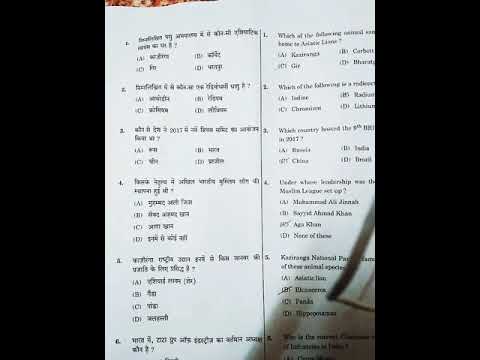 1. निम्नलिखित पशु अभयारण्य में से कौन-सी एशियाटिक
का घर है ?
(A) काज़ीरंगा (B) कॉर्बेट
(C) गिर (D) भरतपुर
2. निम्नलिखित में से कौन-सा एक रेडियोधर्मी धातु है ?
(A) आयोडीन (B) रेडियम
(C) क्रोमियम (D) लीथियम
3. कौन से देश ने 2017 में नवें ब्रिक्स समिट का आयोजन
किया था ?
(A) रूस (B) भारत
(C) चीन (D) ब्राज़ील
4. किसके नेतृत्व में अखिल भारतीय मुस्लिम लीग की
स्थापना हुई थी ?
(A) मुहम्मद अली जिन्ना
(B) सैयद अहमद खान
(C) आगा खान
(D) इनमें से कोई नहीं
5. काज़ीरंगा राष्ट्रीय उद्यान इनमें से किस जानवर की
प्रजाति के लिए प्रसिद्ध है ?
(A) एशियाई लायन (शेर)
(B) गैंडा
(C) पांडा
(D) जलहस्ती
6. भारत में, टाटा ग्रुप ऑफ़ इंडस्ट्रीज का वर्तमान अध्यक्ष
कौन है ?
1. Which of the following animal
home to Asiatic Lions ?
(A) Kaziranga (B) Corbett
(C) Gir (D)
2. Which of the following is a
(A) Iodine (B) Radium
(C) Chromium (D) Lithium
3. Which country hosted the 9th
in 2017 ?
(A) Russia (B) India
(C) China (D) Brazil
4. Under whose leadership was the
Muslim League set up ?
(A) Muhammad Ali Jinnah
(B) Sayyid Ahmad Khan
(C) Aga Khan
(D) None of these
5. Kaziranga National
of these animal species
(A) Asiatic lion
(B) Rhinoceros
(C) Panda
(D) Hippopotamus
6. Who is the current
of Industries in India ?